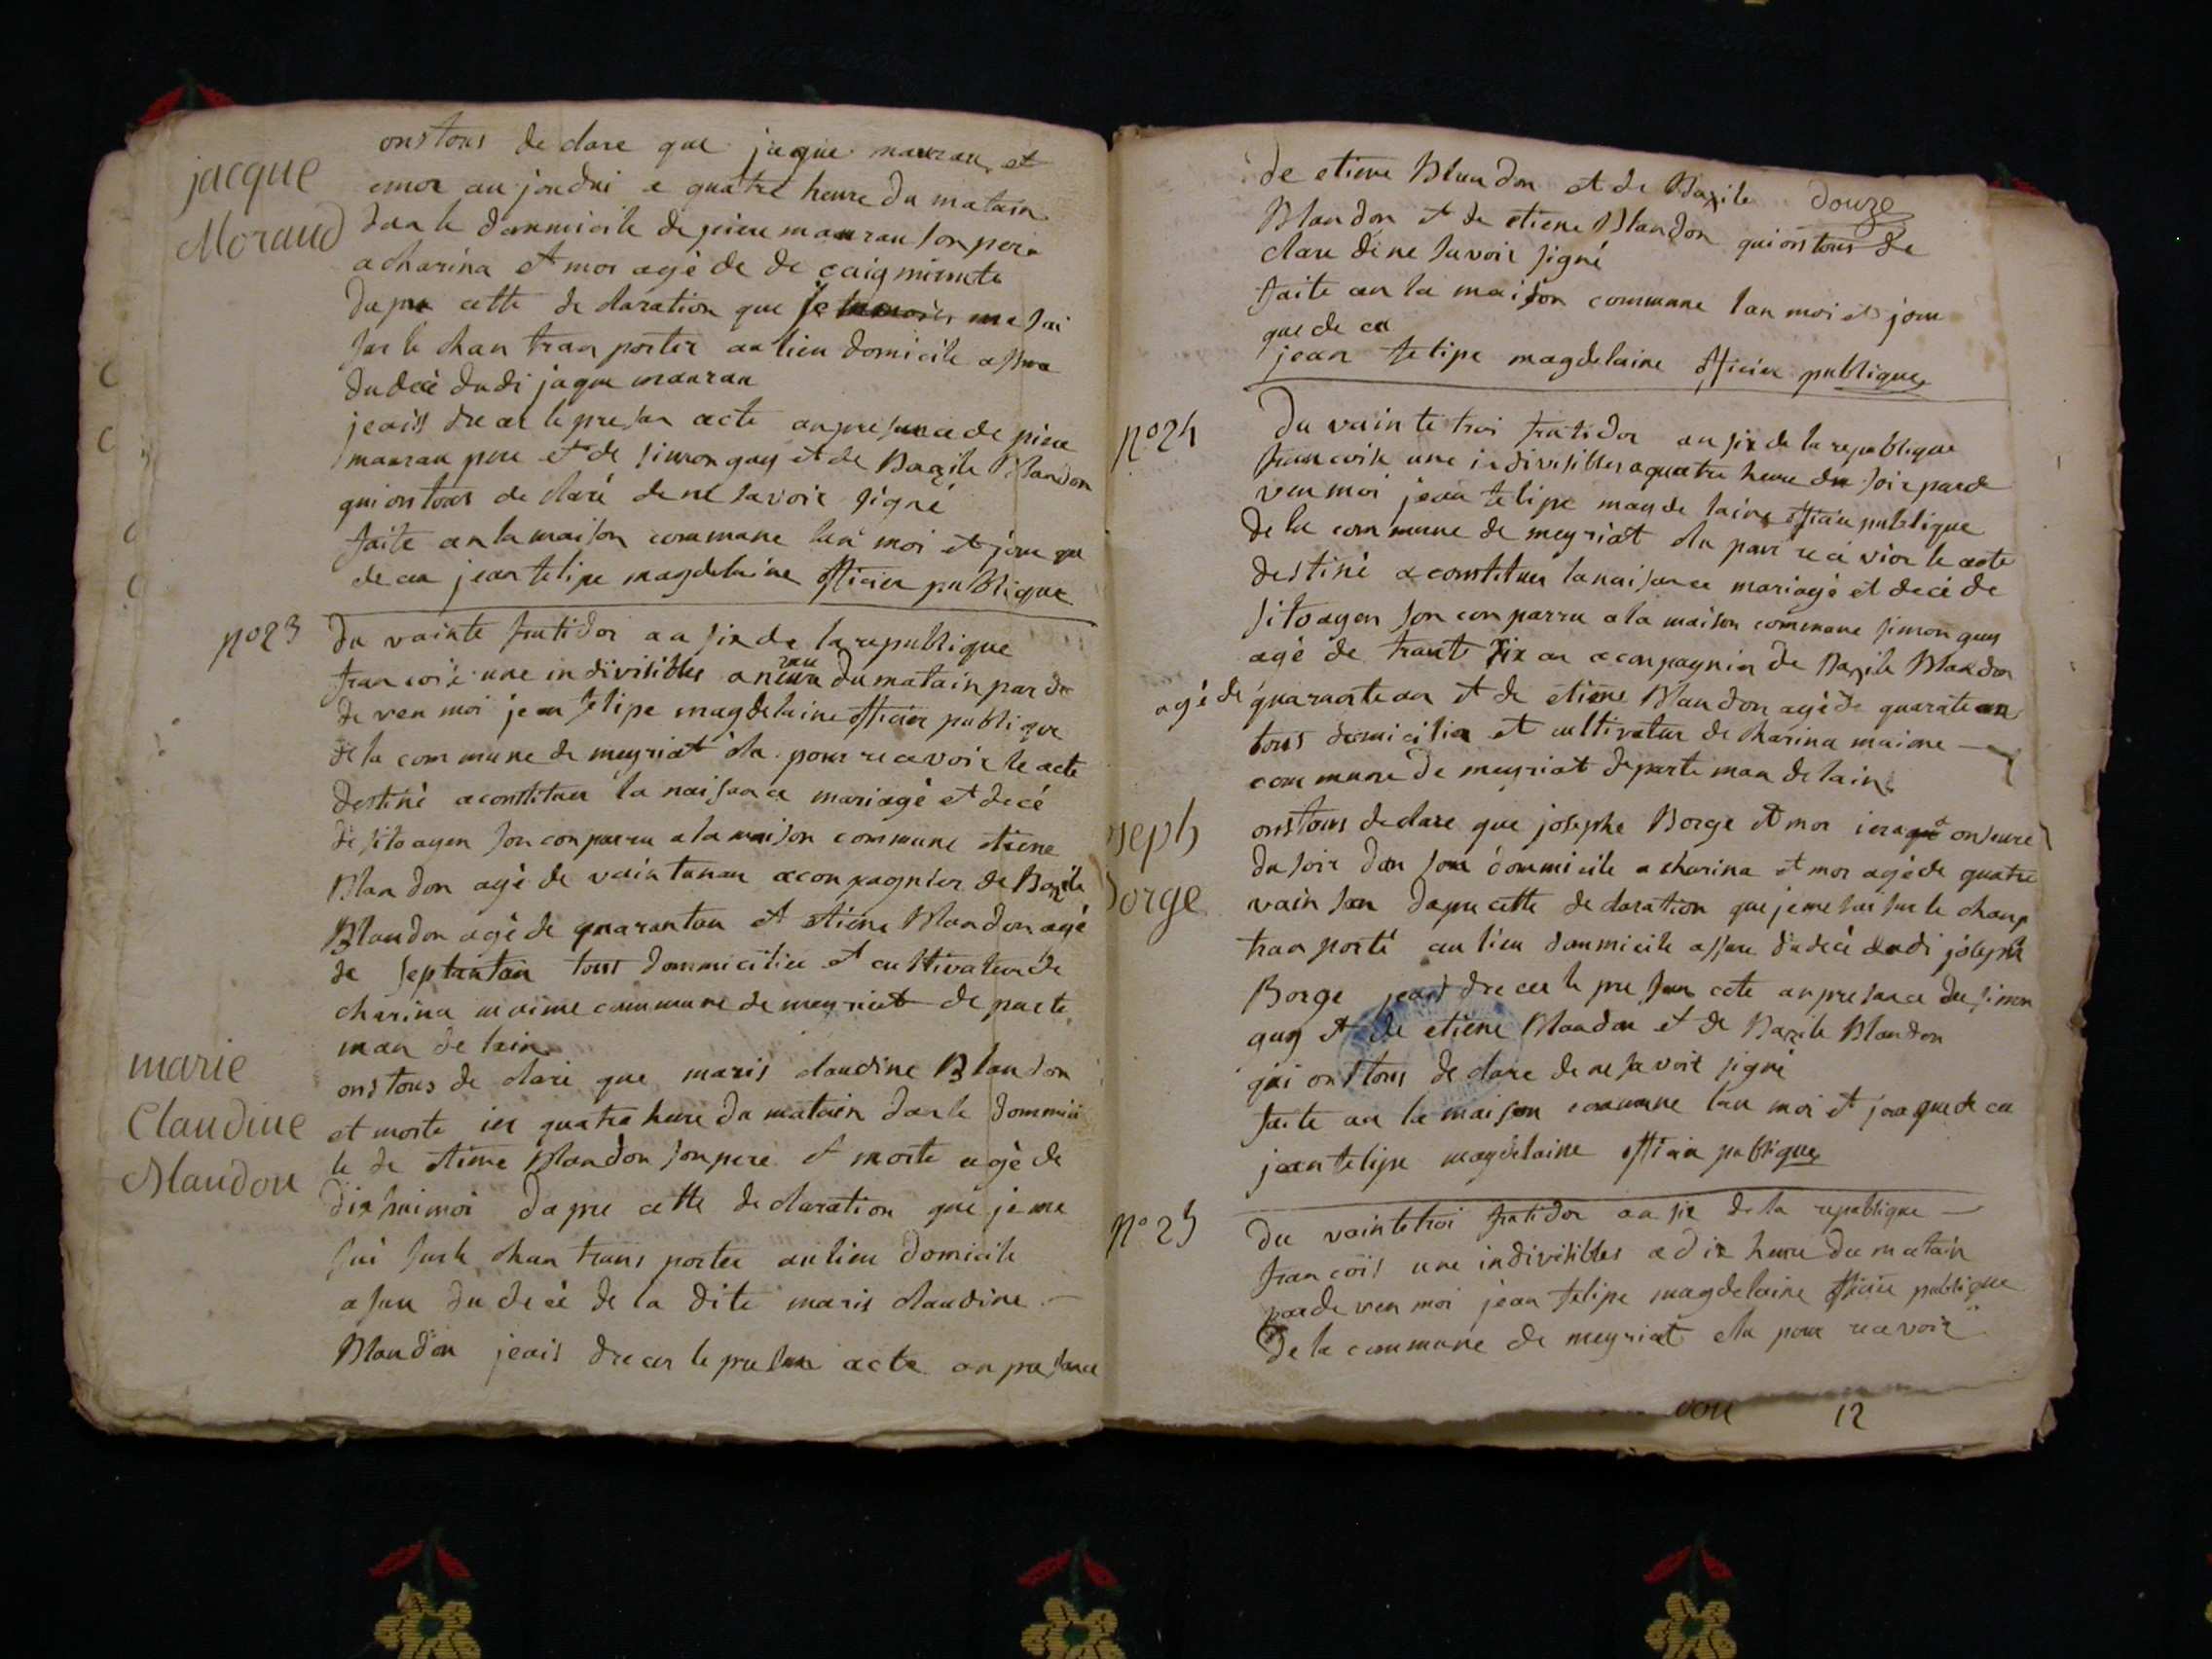 jacque
Moraud
onstous de clare que jaque mauran et
emor au jourdui a quatre heure du matain
dan le dommicile de piere mauran son pere
a charina et mor agé de de caig minute
dapre cette de claration que je me sui
sur le chan tran porter au lieu domicile assure
du décé dudi jaque mauran
jeaiss dre cer le presan acte anpresance de piere
mauran pere et de simon guy et de Bazile Blandon
qui onstous de claré de ne savoir signé
faite an la maison commune lan moi et jour que
de cu jean felipe magdelaine officier publique
n° 23
du vainte frutidor an six de la republique
francoise une indivisibles a neuveure du matain par de
de ven moi jean felipe magdelaine officier publique
de la commune de meyriat élu pour recevoir le acte
destiné aconstituer la naisance mariagé et décé
de sitoayen son conparru a la maison commune étiene
Blandon agé de vaintunan aconpagnier de Bazile
Blandon agé de quarantan et étiene Blandon agé
de septantan tous dommicilié et cultivateur de
charina maime commune de meyriat de parte
man de lain
marie
Claudine
Blandon
onstous de claré que maris claudine Blandon
et morte ier quatre heure du matain dan le dommici
le de étiene Blandon son pere et morte agé de
dix hui moi dapre cette de claration que je me
sui sur le chan trans porter au lieu domicile
asure du décé de la dite maris claudine
Blandon jeais dre cer le presan acte an presance
douze
de etiene Blandon et de Bazile
Blandon et de etiene Blandon qui onstous de
clare de ne savoir signé
faite an la maison commune lan moi et jour
que de cu
jean felipe magdelaine officier publique
n° 24
Du vainte troi frutidor an six de la republique
francoise une indivisibles a quatre heure du soir par de
ven moi jean felipe magdelaine officier publique
de la commune de meyriat élu pour recevoir le acte
destiné a constituer la naisance mariagé et décé de
sitoayen son conparru a la maison commune simon guy
agé de trante six an aconpagnier de Bazile Blandon
agé de quarante an et de etiene Blandon agé de quarate an
tous domicilier et cultivatur de charina maime
commune de meyriat departeman de lain
seph
Borge
onstous declare que josephe Borge et mor ier a onseure
du soir dan son dommicile a charina et mor agé de quatre
vain san dapre cette de claration que je me sui sur le chanp
tran porté au lieu dommicile assure du décé dudi joseph
Borge jeais dre cer le presan acte anpresance du simon
guy et de etiene Blandon et de Bazile Blandon
qui onstous de clare de ne savoir signé
faite an la maison commune lan moi et jour que de cu
jean felipe magdelaine officier publique
n° 25
Du vainte troi frutidor an six de la republique
francois une indivisibles a dix heure du matain
par de ven moi jean felipe magdelaine officier publique
De la commune de meyriat elu pour recevoir
12